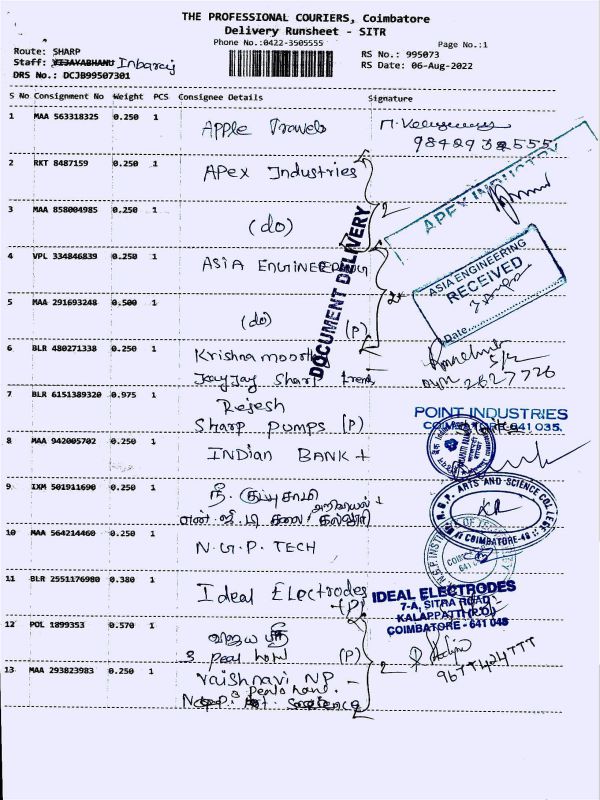 THE PROFESSIONAL COURIERS, Coimbatore
Delivery Runsheet - SITR
Phone No.:0422-3505555
Page No.:1
Route: SHARP
RS No.: 995073
Staff: VIJAYABHANU Inbaraj
RS Date: 06-Aug-2022
DRS No.: DCJB99507301
S No Consignment No Weight PCS Consignee Details Signature
1 MAA 563318325 0.250 1 Apple Travels
2 RKT 8487159 0.250 1 Apex Industries
APEX INDUSTRY
3 MAA 858004985 0.250 1 (do) 2
DOCUMENT DELIVERY
4 VPL 334846839 0.250 1 ASIA ENGINEERING
ASIA ENGINEERING
RECEIVED
Date
5 MAA 291693248 0.500 1 (do) (P)
6 BLR 480271338 0.250 1 Krishnamoorthy
Jay Jay Sharp trends
2627726
7 BLR 6151389320 0.975 1 Rejesh
Sharp Pumps (P)
POINT INDUSTRIES
COIMBATORE-641 035.
8 MAA 942005702 0.250 1 INDian BANK +
9 IXM 501911690 0.250 1 நீ. குப்புசாமி
என்.ஜி.பி கலை
N.G.P. ARTS AND SCIENCE COLLEGE
COIMBATORE-48
10 MAA 564214460 0.250 1 N.G.P TECH
11 BLR 2551176980 0.380 1 Ideal Electrodes
(P)
IDEAL ELECTRODES
7-A, SITRA ROAD
KALAPPATTI (P.O.)
COIMBATORE - 641 048
12 POL 1899353 0.570 1
3 (P) 2
13 MAA 293823983 0.250 1 Vaishnavi NP